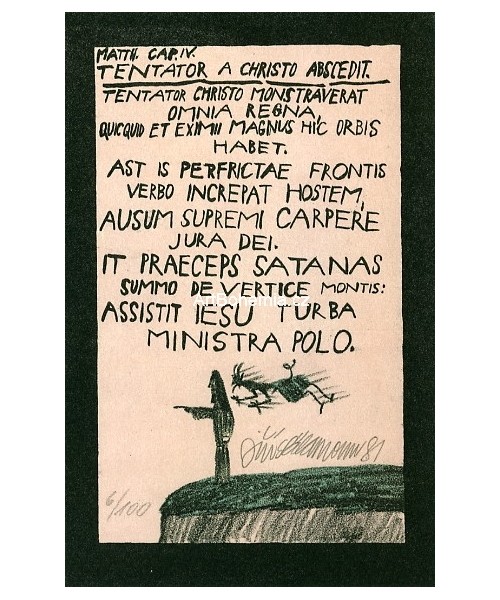 MATTH. CAP. IV.
TENTATOR A CHRISTO ABSCEDIT.
TENTATOR CHRISTO MONSTRAVERAT
OMNIA REGNA,
QUICQUID ET EXIMII MAGNUS HIC ORBIS
HABET.
AST IS PERFRICTAE FRONTIS
VERBO INCREPAT HOSTEM,
AUSUM SUPREMI CARPERE
JURA DEI.
IT PRAECEPS SATANAS
SUMMO DE VERTICE MONTIS:
ASSISTIT IESU TURBA
MINISTRA POLO.
81
6/100